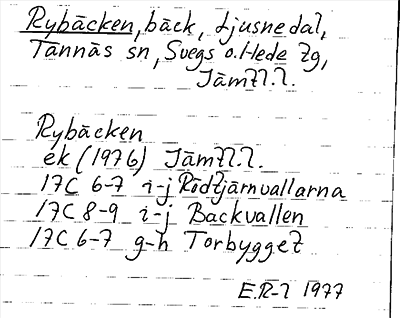 Rybäcken, bäck, Ljusnedal,
Tännäs sn, Svegs o. Hede tg,
Jämtl.l.
Rybäcken
ek (1976) Jämtl.l.
17C 6-7 i-j Rödtjärnvallarna
17C 8-9 i-j Backvallen
17C 6-7 g-h Torbygget
E.R-l 1977